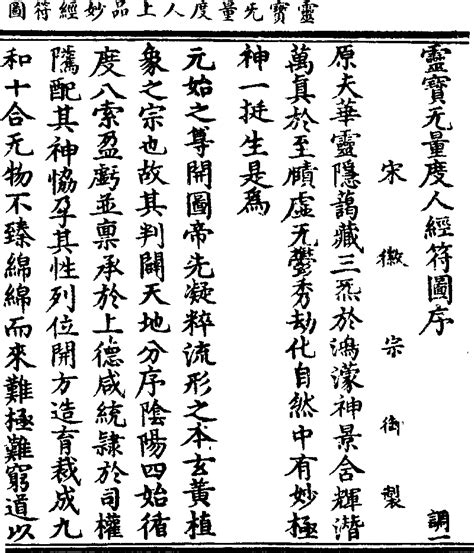 靈寶无量度人上品妙經符圖
靈寶无量度人經符圖序
調一
宋徽宗御製
原夫華靈隱藹藏三炁於鴻濛神景含輝潛
萬真於至賾虛无鬱秀劫化自然中有妙極
神一挺生是爲
元始之尊開圖帝先凝粹流形之本玄黃植
象之宗也故其判闢天地分序陰陽四始循
度八索盈虧並稟承於上德咸統隸於司權
隲配其神協孕其性列位開方造育裁成九
和十合无物不臻綿綿而來難極難窮道以